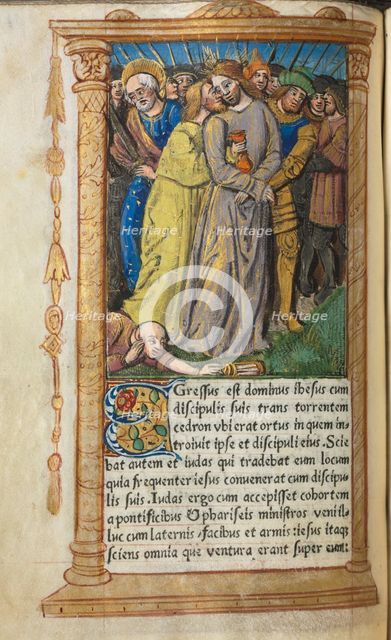 Heritage Heritage
Heritage Heritage
Heritage Heritage
©
Heritage Heritage
EGressus est dominus ihesus cum
discipulis suis trans torrentem
cedron vbi erat ortus in quem in
troiuit ipse et discipuli eius. Scie
bat autem et iudas qui tradebat eum locum
quia frequenter iesus conuenerat cum discipu
lis suis. Iudas ergo cum accepisset cohortem
a pontificibus & phariseis ministros venit il
luc cum laternis / facibus et armis: iesus itaqʒ
sciens omnia que ventura erant super eum: